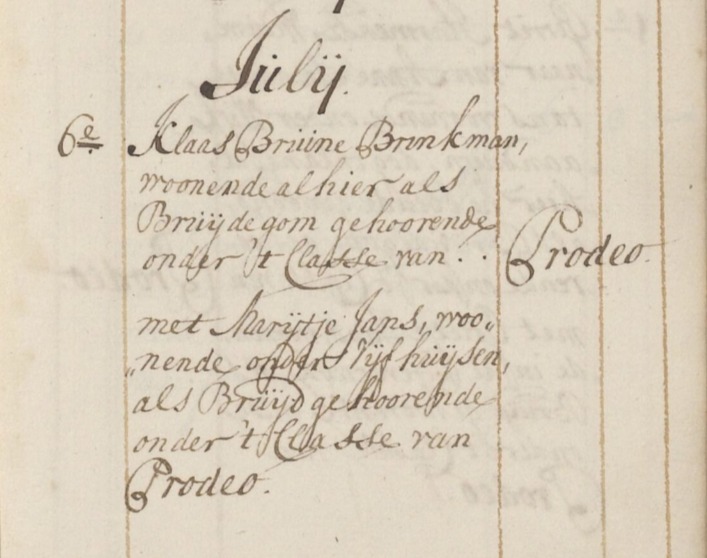 Julij.
6e Klaas Bruine Brinkman,
woonende alhier als
Bruijdegom gehoorende
onder 't Classe van . . Prodeo.
met Marijtje Jans, woo„
„nende onder Vijfhuijsen,
als Bruijd gehoorende
onder 't Classe van
Prodeo.